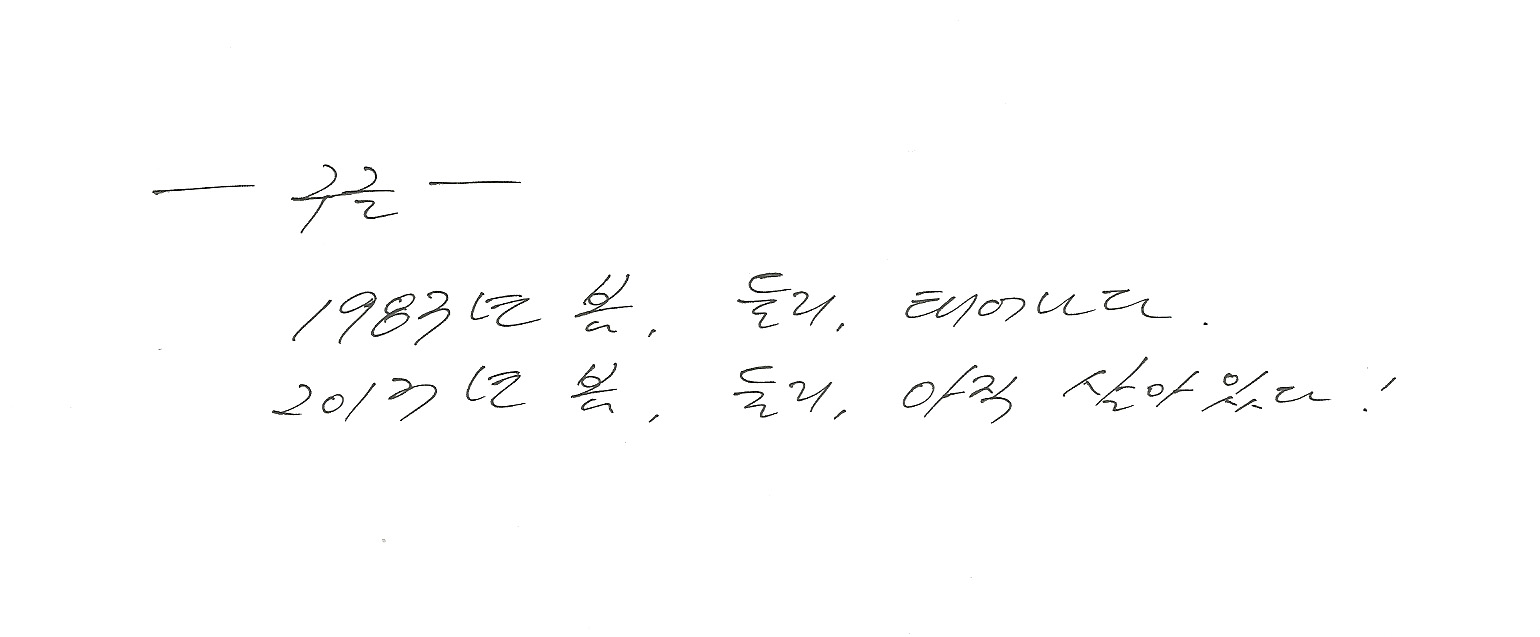 — 구글 —
1983년 봄, 둘리, 태어나다.
2013년 봄, 둘리, 아직 살아있다!